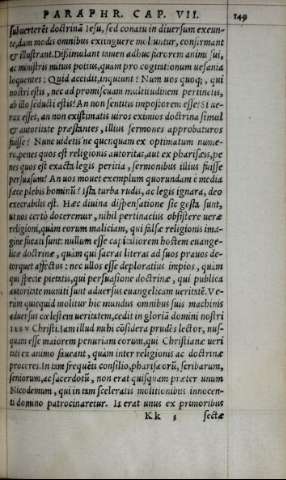 PARAPHR. CAP. VII. 149
subuerterẽt doctrinã Iesu, sed conatu in diuersum exeun-
te, dam modis omnibus extinguere moliuntur, confirmant
& illustrant. Dissimulant tamen adhuc furorem animi sui,
ac ministris mitius potius, quam pro cogitationum uesania
loquentes: Quid accidit, inquiunt? Num uos quoqꝫ, qui
nostri estis, nec ad promiscuam multitudinem pertinetis,
ab illo seducti estis? An non sentitis impostorem esse? Si ue-
rax esset, an non existimatis uiros eximios doctrina simul
& autoritate præstantes, illius sermones approbaturos
fuisse? Nunc uidetis ne quenquam ex optimatum nume-
ro, penes quos est religionis autoritas, aut ex pharisæis, pe-
nes quos est exacta legis peritia, sermonibus illius fuisse
persuasum? An uos mouet exemplum quorundam e media
fæce plebis hominũ? Ista turba rudis, ac legis ignara, deo
execrabilis est. Hæc diuina dispensatione sic gesta sunt,
ut nos certò doceremur, nihil pertinacius obsistere ueræ
religioni, quàm eorum maliciam, qui falsæ religionis ima-
gine fucati sunt: nullum esse capitaliorem hostem euange-
licæ doctrinæ, quàm qui sacras literas ad suos prauos de-
torquet affectus: nec ullos esse deploratius impios, quàm
qui specie pietatis, qui persuasione doctrinæ, qui publica
autoritate muniti sunt aduersus euangelicam ueritatẽ. Ve-
rùm quicquid molitur hic mundus omnibus suis machinis
aduersus cœlestem ueritatem, cedit in gloriã domini nostri
IESV Christi. Iam illud nubi cõsidera prudẽs lector, nus-
quam esse maiorem penuriam eorum, qui Christianæ ueri
tati ex animo faueant, quàm inter religionis ac doctrinæ
proceres. In tam frequẽti consilio, pharisæorũ, scribarum,
seniorum, ac sacerdotũ, non erat quisquam præter unum
Nicodemum, qui in tam sceleratis molitionibus innocen-
ti domino patrocinaretur. Is erat unus ex primoribus
Kk 5 sectæ